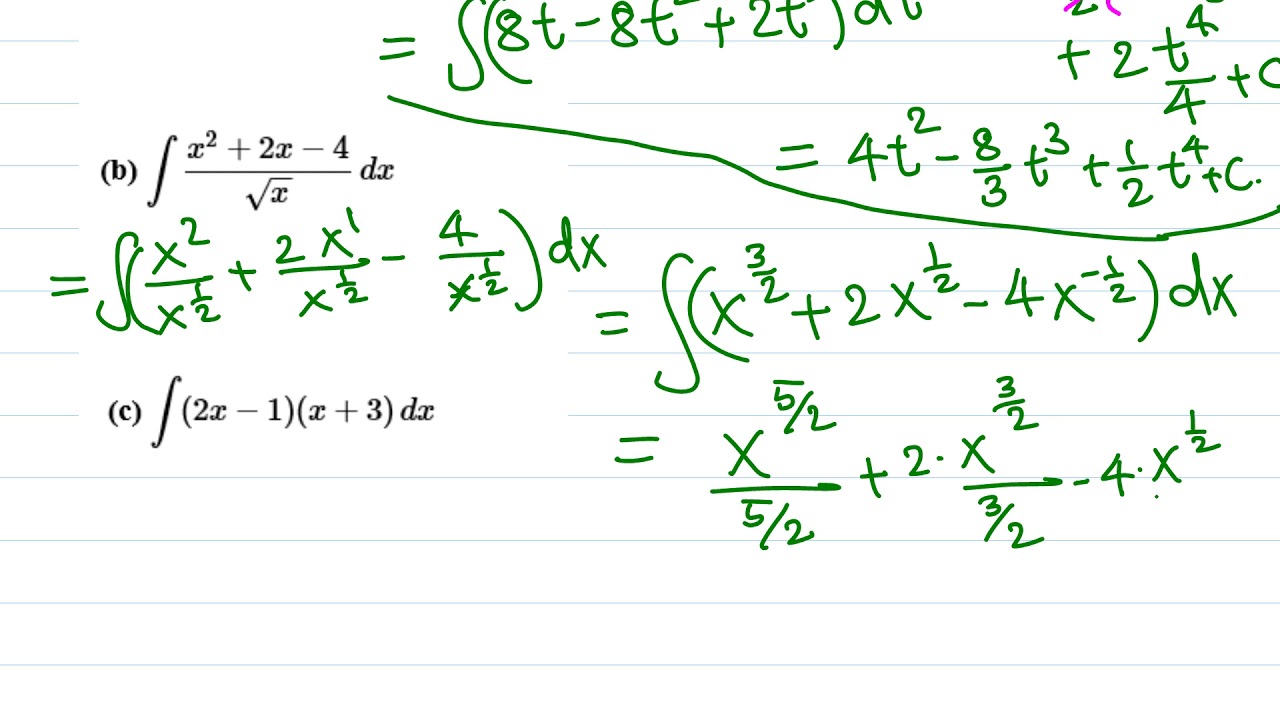 = ∫(8t − 8t² + 2t³) dt
+ 2 t⁴/4 + C
= 4t² − 8/3 t³ + 1/2 t⁴ + C.
(b) ∫ (x² + 2x − 4)/√x dx
= ∫(x²/x^(1/2) + 2x¹/x^(1/2) − 4/x^(1/2)) dx
= ∫(x^(3/2) + 2x^(1/2) − 4x^(−1/2)) dx
(c) ∫(2x − 1)(x + 3) dx
= x^(5/2)/(5/2) + 2·x^(3/2)/(3/2) − 4·x^(1/2)